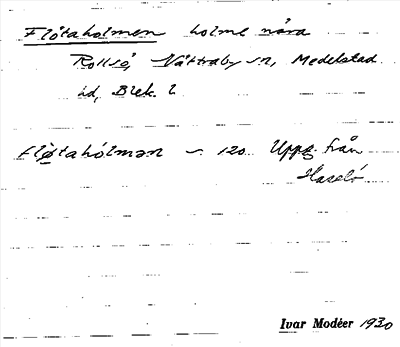 Flötaholmen holme nära
Rollsö, Nättraby sn, Medelstad
hd, Blek. l.
fløtahólmən ~ 120. Uppg. från
Hasslö
Ivar Modéer 1930